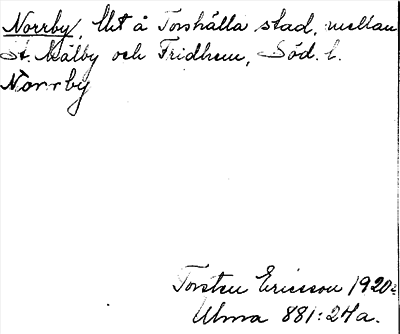 Norrby, lht å Torshälla stad, mellan
St. Mälby och Fridhem, Söd. l.
Norrby
Torsten Ericsson 1920
Ulma 881:24a.